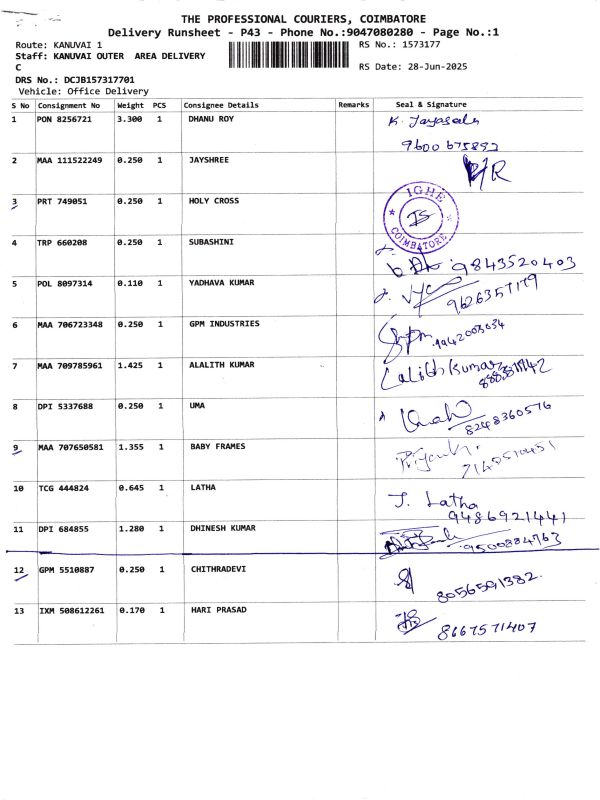 THE PROFESSIONAL COURIERS, COIMBATORE
Delivery Runsheet - P43 - Phone No.:9047080280 - Page No.:1
Route: KANUVAI 1
RS No.: 1573177
Staff: KANUVAI OUTER AREA DELIVERY
C
RS Date: 28-Jun-2025
DRS No.: DCJB157317701
Vehicle: Office Delivery
S No Consignment No Weight PCS Consignee Details Remarks Seal & Signature
1 PON 8256721 3.300 1 DHANU ROY K. Jayasalu
9600675892
2 MAA 111522249 0.250 1 JAYSHREE
3 PRT 749051 0.250 1 HOLY CROSS IGHE COIMBATORE
4 TRP 660208 0.250 1 SUBASHINI
9843520403
5 POL 8097314 0.110 1 YADHAVA KUMAR
9626357179
6 MAA 706723348 0.250 1 GPM INDUSTRIES
7 MAA 709785961 1.425 1 ALALITH KUMAR Lalith Kumar
8 DPI 5337688 0.250 1 UMA
8248360576
9 MAA 707650581 1.355 1 BABY FRAMES
10 TCG 444824 0.645 1 LATHA J. Latha
9486921441
11 DPI 684855 1.280 1 DHINESH KUMAR 9500884763
12 GPM 5510887 0.250 1 CHITHRADEVI
8056591382
13 IXM 508612261 0.170 1 HARI PRASAD
8667571407